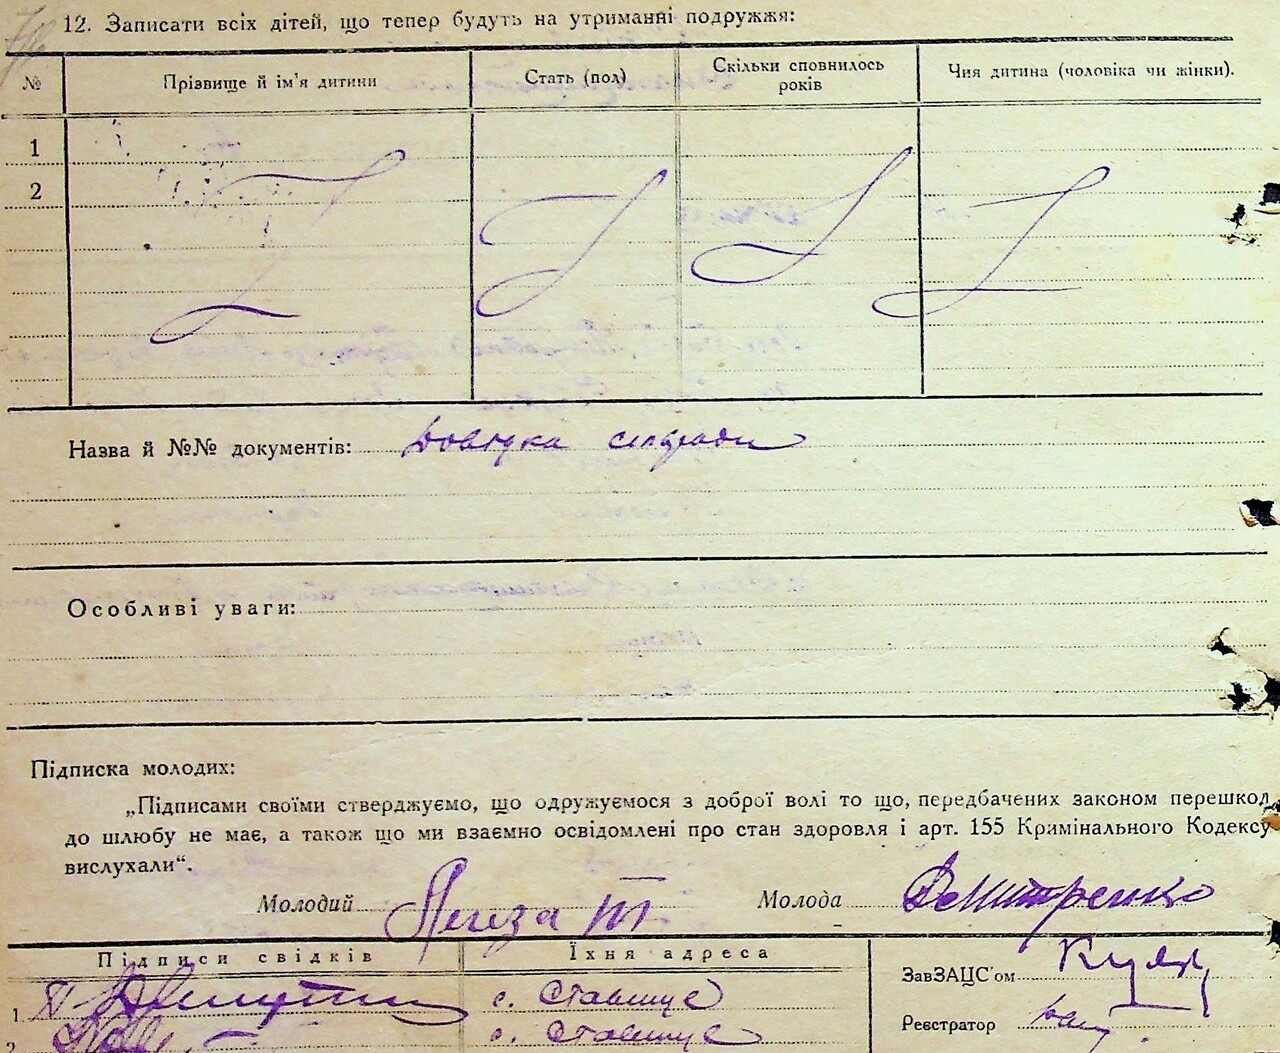 12. Записати всіх дітей, що тепер будуть на утриманні подружжя:
№ Прізвище й ім'я дитини Стать (пол) Скільки сповнилось років Чия дитина (чоловіка чи жінки).
1
2
Назва й №№ документів: Довідка сільради
Особливі уваги:
Підписка молодих:
„Підписами своїми стверджуємо, що одружуємося з доброї волі то що, передбачених законом перешкод
до шлюбу не має, а також що ми взаємно освідомлені про стан здоровля і арт. 155 Кримінального Кодексу
вислухали“.
Молодий Легеза Молода Дмитренко
Підписи свідків Їхня адреса
ЗавЗАЦС'ом
1. с. Ставище
Реєстратор
2 с. Ставище